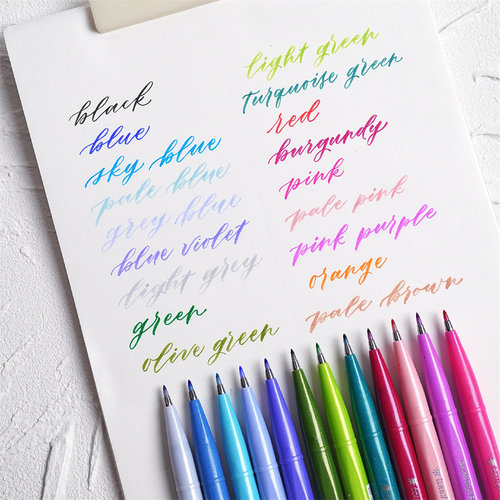 black
blue
sky blue
pale blue
grey blue
blue violet
light grey
green
olive green
light green
turquoise green
red
burgundy
pink
pale pink
pink purple
orange
pale brown